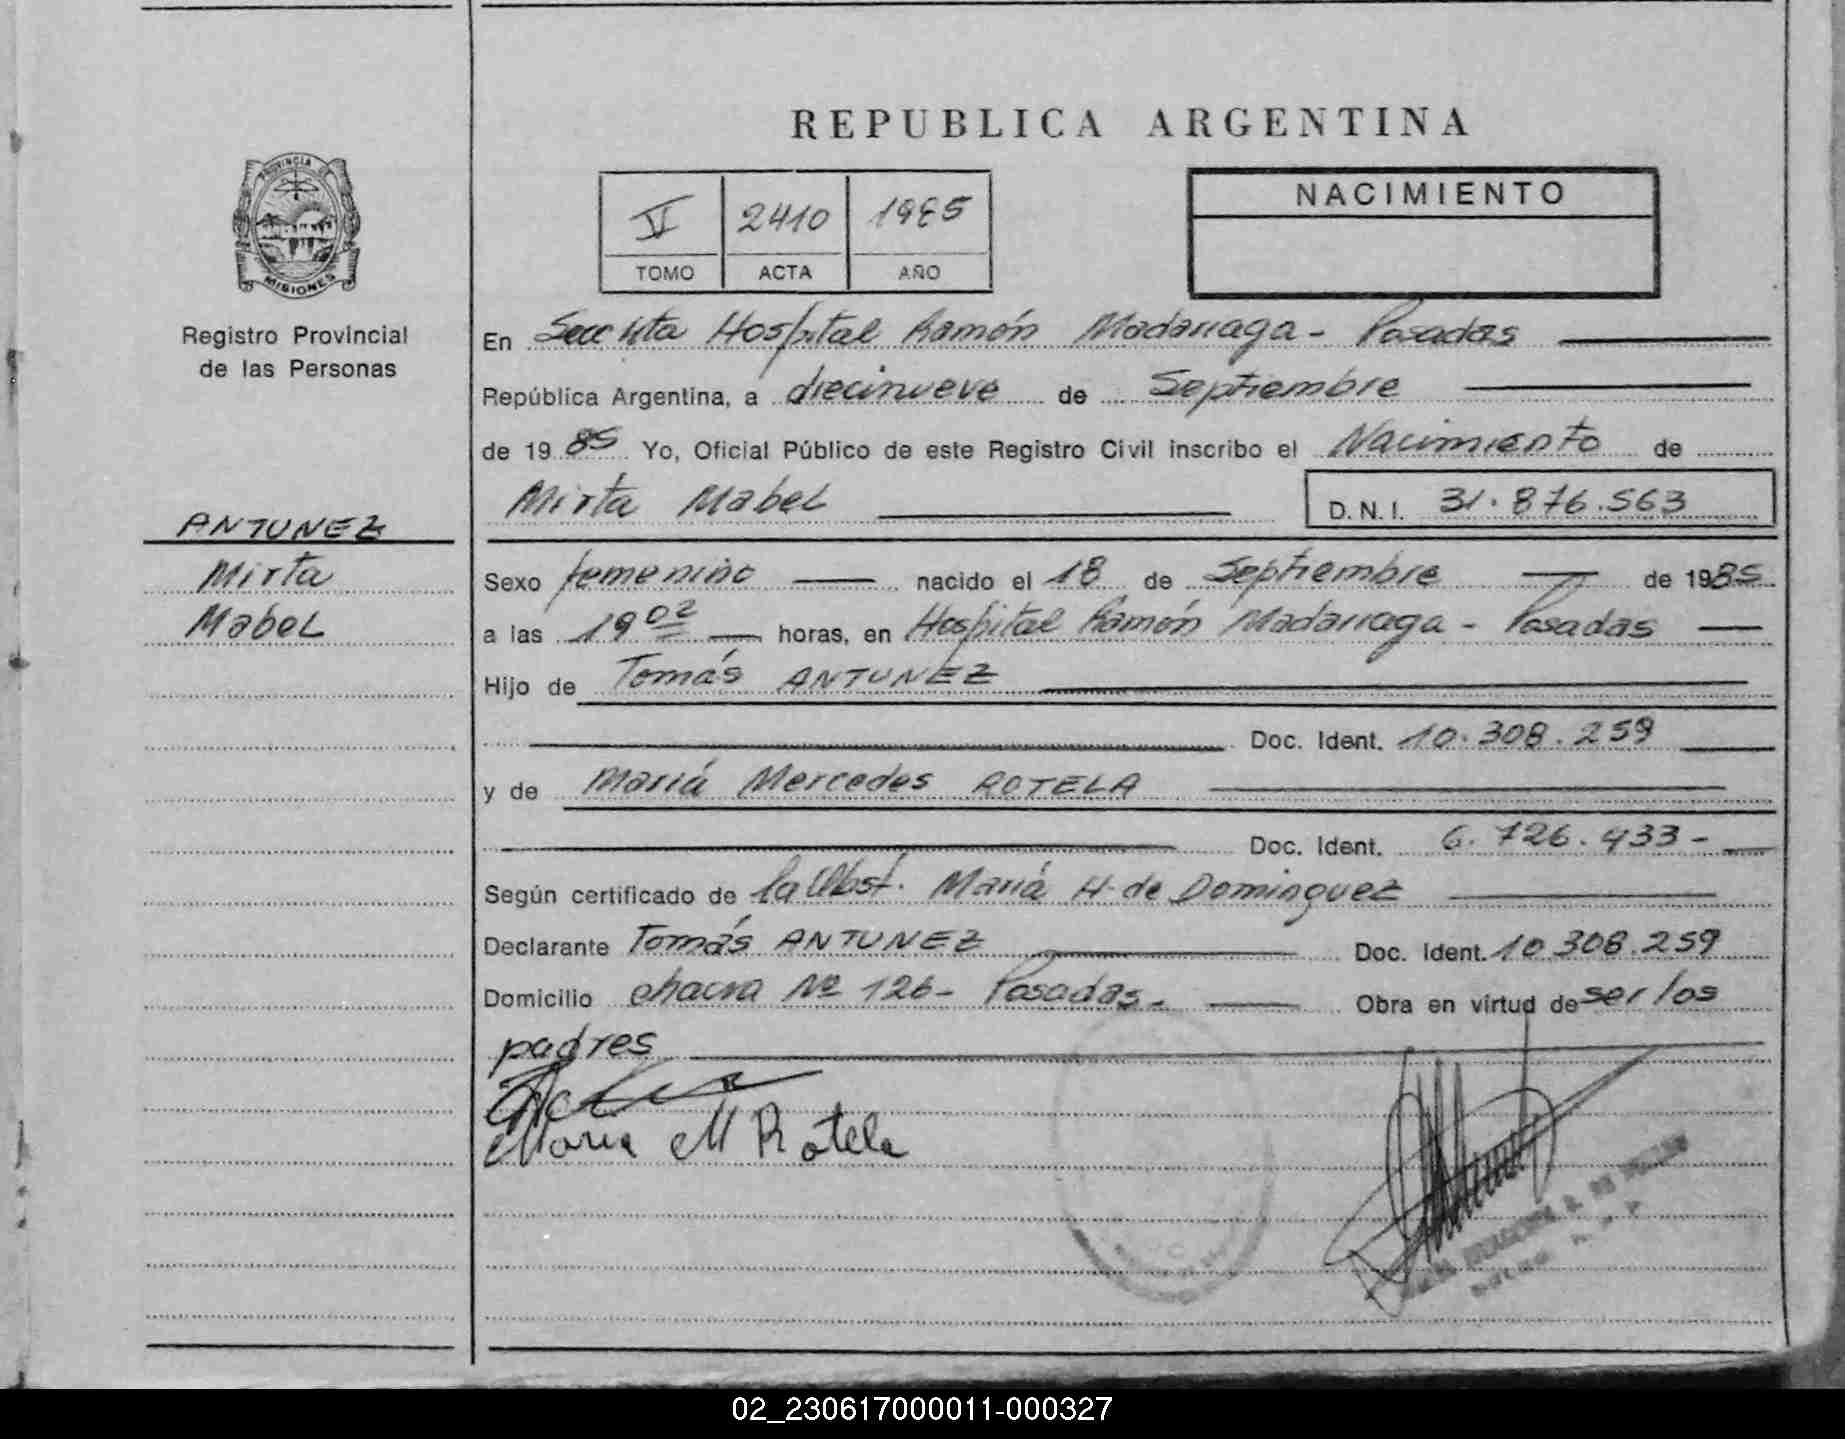 REPUBLICA ARGENTINA
PROVINCIA DE
MISIONES
Registro Provincial
de las Personas
V 2410 1985
TOMO ACTA AÑO
NACIMIENTO
En Secc 4ta Hospital Ramón Madariaga - Posadas
República Argentina, a diecinueve de Septiembre
de 19 85 Yo, Oficial Público de este Registro Civil inscribo el Nacimiento de
Mirta Mabel D.N.I. 31.876.563
ANTUNEZ
Mirta
Mabel
Sexo femenino nacido el 18 de Septiembre de 1985
a las 19 02 horas, en Hospital Ramón Madariaga - Posadas
Hijo de Tomás ANTUNEZ
Doc. Ident. 10.308.259
y de Mariá Mercedes ROTELA
Doc. Ident. 6.726.433-
Según certificado de la Obst. Mariá H. de Dominguez
Declarante Tomás ANTUNEZ Doc. Ident. 10 308.259
Domicilio chacra Nº 126- Posadas- Obra en virtud de ser los
padres
Maria M Rotela
02_230617000011-000327